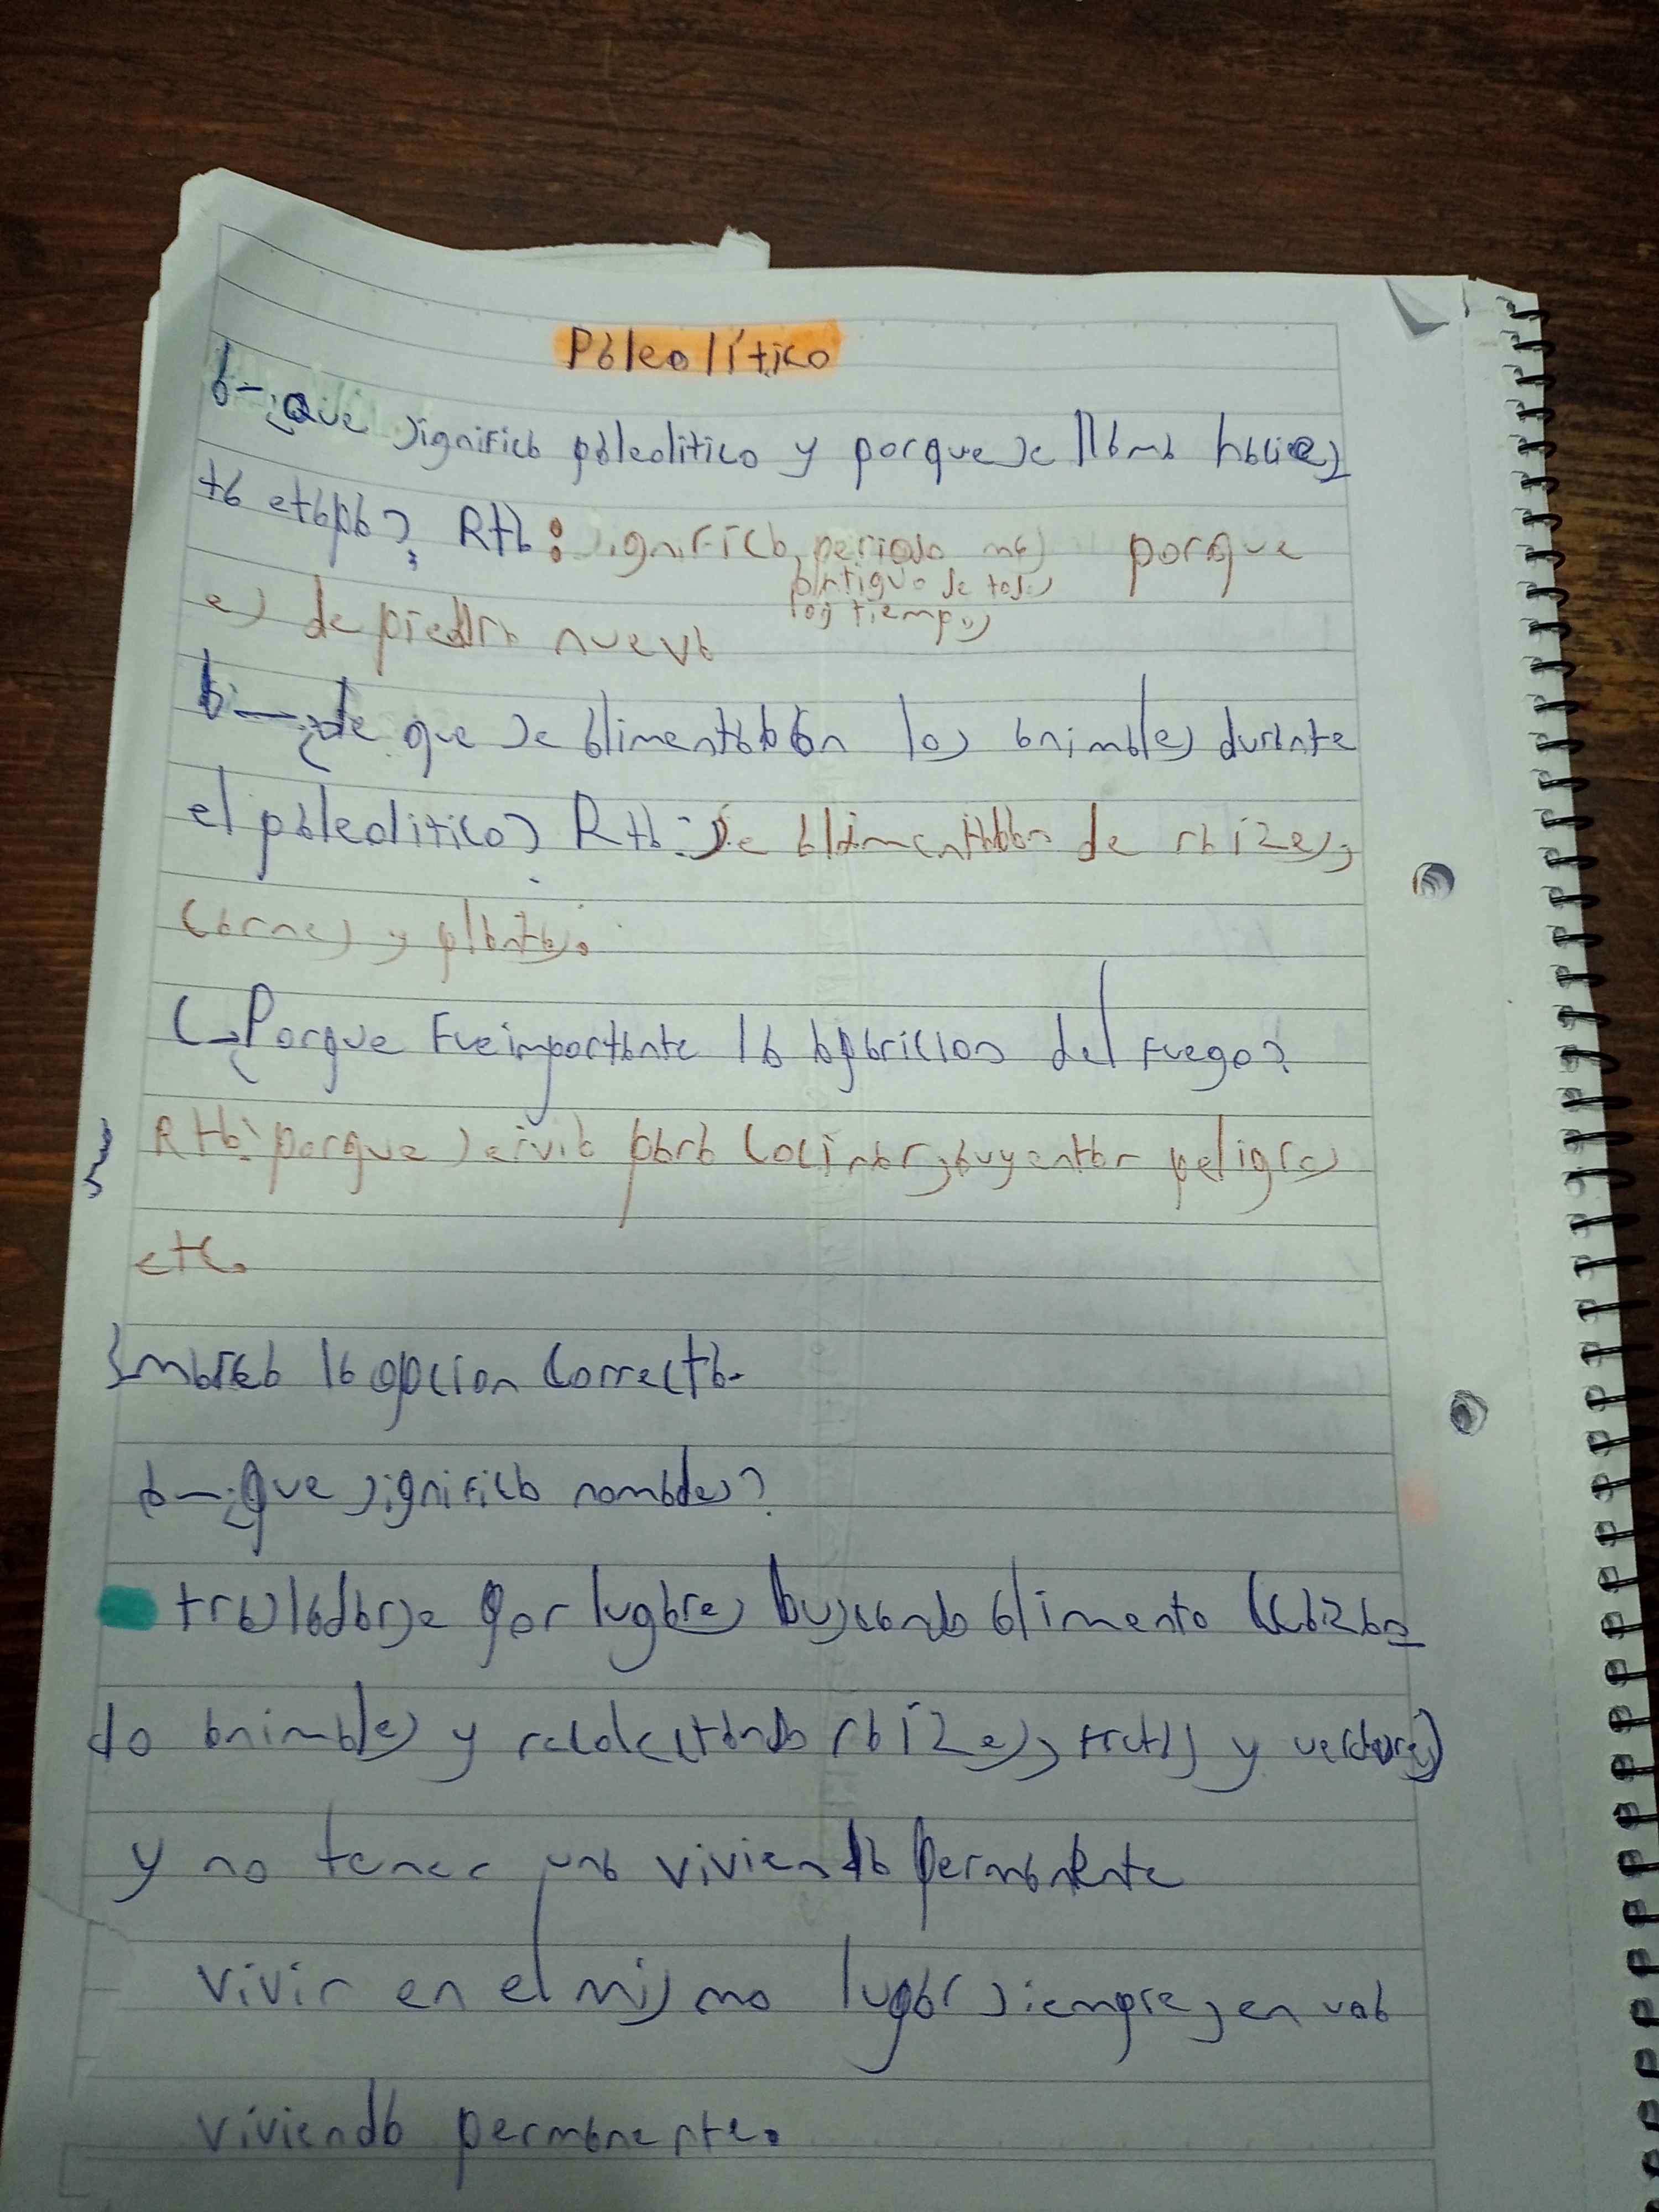 Paleolítico
a-¿Que significa paleolitico y porque se llama hacia es
ta etapa? Rta: significa periodo mas porque
antiguo de todos
los tiempos
es de piedra nueva
b-¿de que se alimentaban los animales durante
el paleolitico? Rta: Se alimentaban de raizes,
carnes y plantas.
C-¿Porque fue importante la aparicion del fuego?
Rta: porque servia para cocinar, auyentar peligros
etc.
3 marca la opcion correcta.
a-¿que significa nomades?
trasladarse por lugares buscando alimento (cazan
do animales y recolectando raízes, frutas y verduras)
y no tener una vivienda permanente
vivir en el mismo lugar siempre, en una
vivienda permanente.